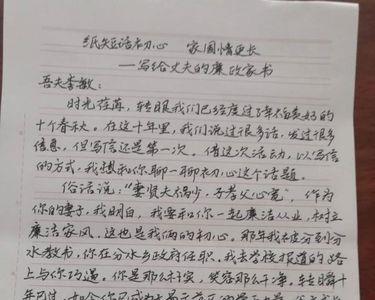 纸短话初心 家国情更长
—写给丈夫的廉政家书
吾夫李敏：
时光荏苒，转眼我们已经度过了年轻美好的
十个春秋。在这十年里，我们说过很多话，发过很多
信息，但写信还是第一次。借这次活动，以写信
的方式，我想和你聊一聊初心这个话题。
俗话说："妻贤夫祸少，子孝父心宽"，作为
你的妻子，我明白，我要和你一起廉洁从业，树立
廉洁家风，这也是我俩的初心。那年我被分到分
水教书，你在分水乡政府任职。我去学校报道的路
上与你巧遇。你是那么朴实，笑容那么干净。转眼十
年已过，如今你已成为